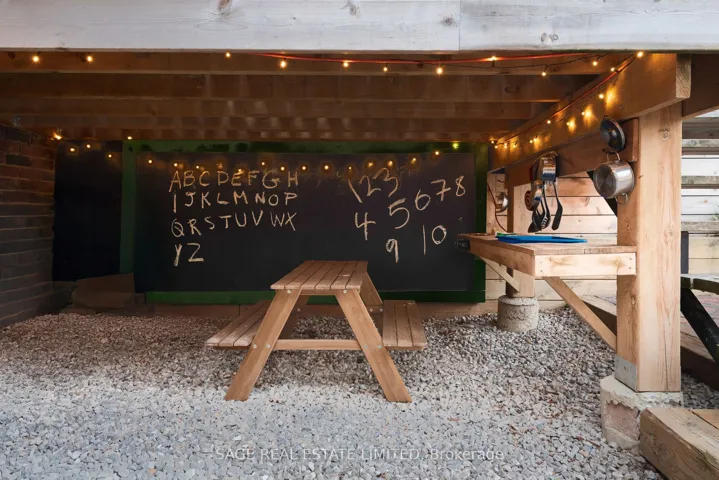 ABCDEFGH
IJKLMNOP
QRSTUVWX
YZ
123
45678
9 10
SAGE REAL ESTATE LIMITED, Brokerage